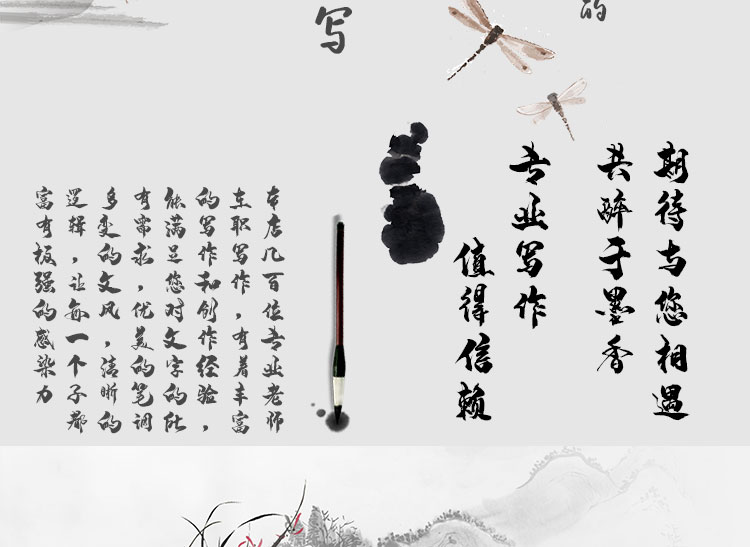 的
写
期待与您相遇
共醉于墨香
专业写作
值得信赖
本店几百位专业老师
在职写作，有着丰富
的写作和创作经验，
能满足您对文字的所
有需求，优美的笔调
多变的文风，清晰的
逻辑，让每一个字都
富有极强的感染力